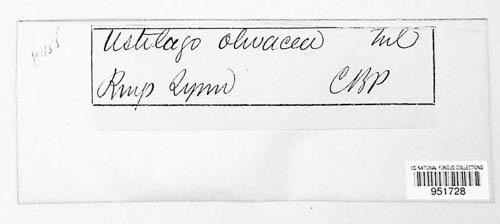 Mass
Ustilago olivacea Tul
Lynn
CBP
US NATIONAL FUNGUS COLLECTIONS
951728